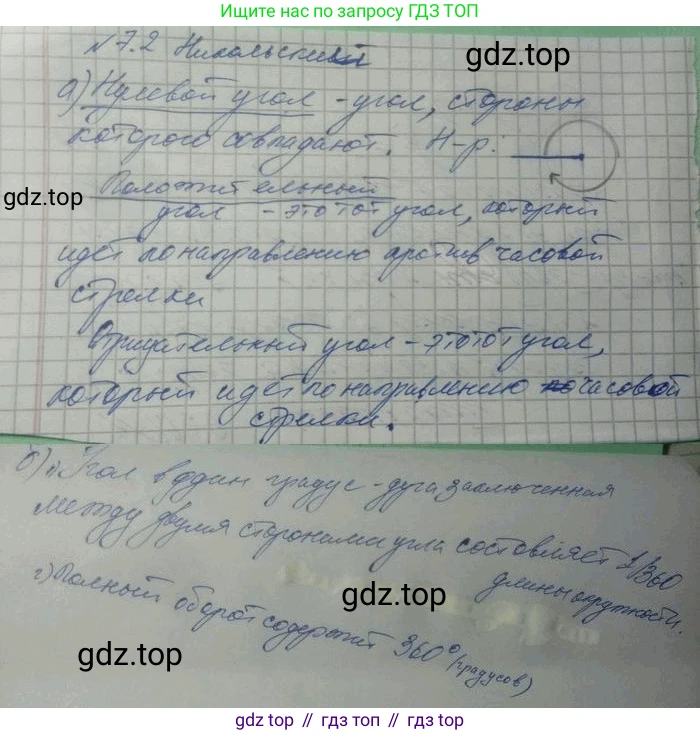 Ищите нас по запросу ГДЗ ТОП
№7.2 Никольский
gdz.top
а) Нулевой угол - угол, стороны
которого совпадают. Н-р:
gdz.top
Положительный
угол - это тот угол, который
идет по направлению против часовой
стрелки
Отрицательный угол - это тот угол,
который идет по направлению по часовой
стрелки.
б) 1) Угол в один градус - дуга заключенная
между двумя сторонами угла составляет 1/360
длины окружности.
gdz.top
г) Полный оборот содержит 360° (градусов)
gdz.top
gdz top // гдз топ // gdz.top